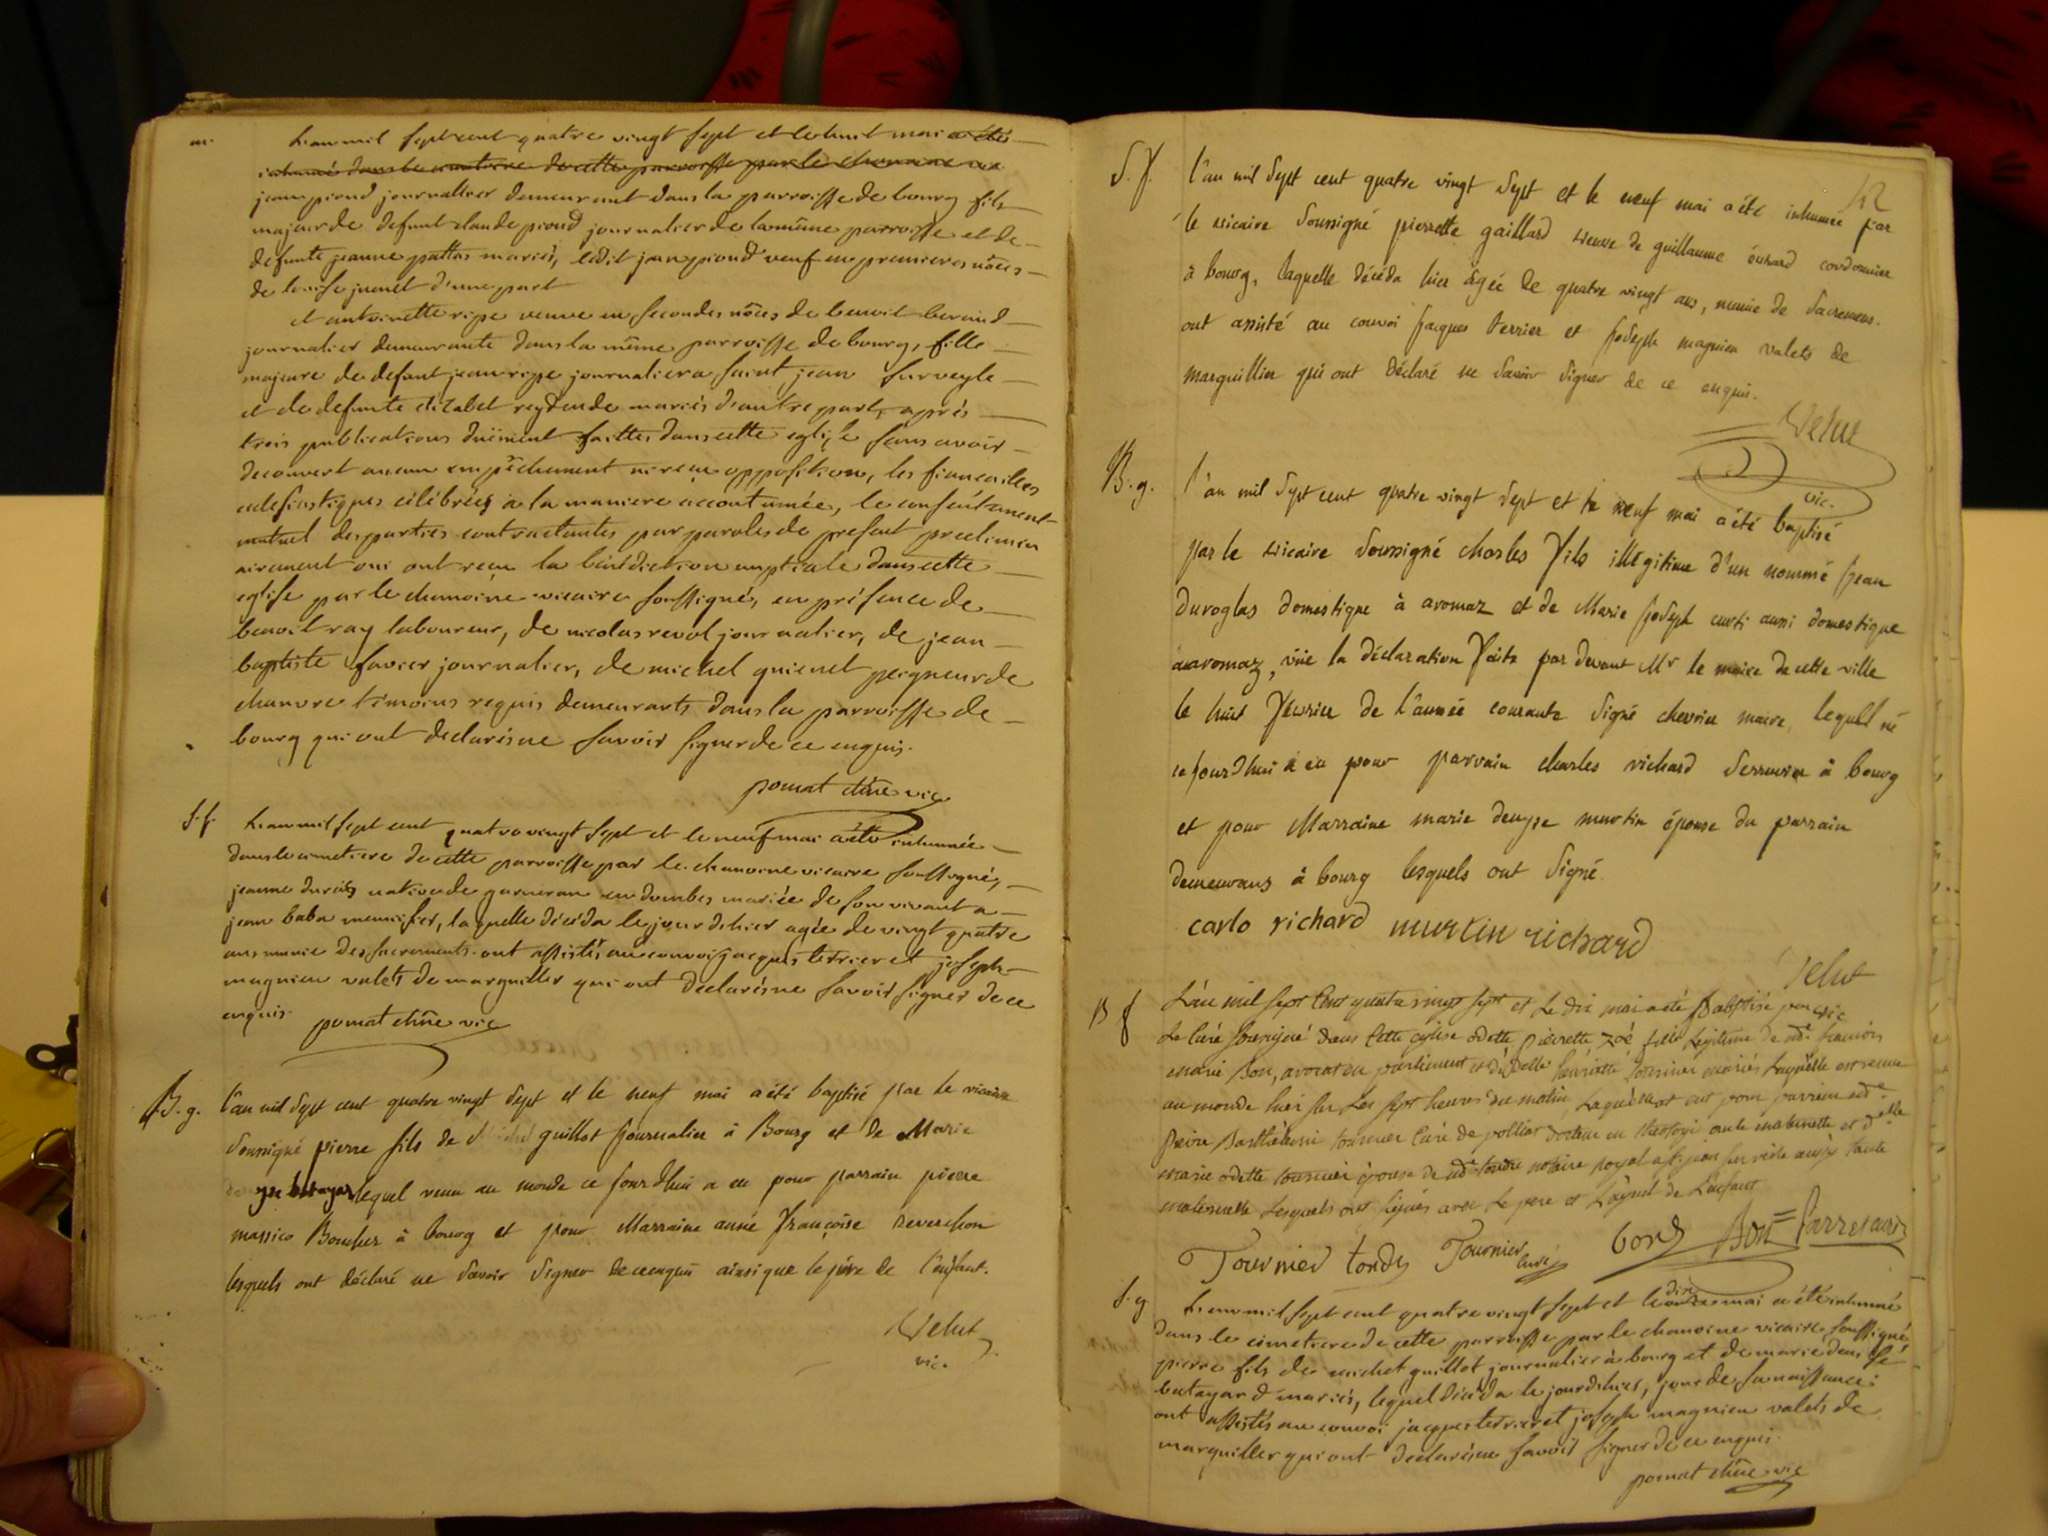 m.
L'an mil sept cent quatre vingt sept et le huit mai a été
inhumés dans le cimetiere de cette parroisse par le chanoine vic
jean pioud journallier demeurant dans la parroisse de bourg fils
majeur de defunt claude pioud journalier de la même parroisse et de
defunte jeanne pattas mariés, ledit jean pioud veuf en premieres nôces
de louise junet d'une part
et antoinette ripe veuve en secondes nôces de benoit beraud
journalier demeurante dans la même parroisse de bourg, fille
majeure de defunt jean ripe journalier a saint jean sur veyle
et de defunte elizabet mariés d'autre part, après
trois publications dûement faittes dans cette eglise sans avoir
decouvert aucun empêchement ni reçu opposition, les fiancailles
eclesiastiques célébrées a la maniere accoutumée, le consentement
mutuel des parties contractantes par paroles de present prelimin
airement oui ont reçu la bénédiction nuptiale dans cette
eglise par le chanoine vicaire soussigné, en présence de
benoit ray laboureur, de nicolas revol journalier, de jean
baptiste favier journalier, de michel quienet peigneur de
chanvre témoins requis demeurants dans la parroisse de
bourg qui ont declarés ne savoir signer de ce enquis.
pomat chne vic
S.f.
L'an mil sept cent quatre vingt sept et le neuf mai a été inhumée
dans le cimetiere de cette parroisse par le chanoine vicaire soussigné,
jeanne native de garneran en dombes mariée de son vivant a
jean baba menusier, laquelle déceda le jour d'hier agée de vingt quatre
ans munie des sacrements. ont assistés au convoi jacques terrier et joseph
magnien valets de marguiller qui ont declarés ne savoir signer de ce
enquis. pomat chne vic
B.g.
l'an mil sept cent quatre vingt sept et le neuf mai a été baptisé par le vicaire
soussigné pierre fils de michel guillot journalier à Bourg et de Marie
lequel venu au monde ce jourdhui a eu pour parrain pierre
massico Boucher à bourg et pour Marraine anne françoise reverchon
lesquels ont déclaré ne savoir signer de ce enquis ainsi que le père de l'enfant.
Velut
vic.
42
S.f.
l'an mil sept cent quatre vingt sept et le neuf mai a été inhumée par
le vicaire soussigné pierrette gaillard veuve de guillaume évrard cordonnier
à bourg, laquelle décéda hier âgée de quatre vingt ans, munie de sacremens.
ont assisté au convoi jacques terrier et joseph magnien valets de
marguillier qui ont déclaré ne savoir signer de ce enquis.
Velut
vic.
B.g.
l'an mil sept cent quatre vingt sept et le neuf mai a été baptisé
par le vicaire soussigné charles fils illégitime d'un nommé jean
duroglas domestique à aromaz et de Marie joseph curti aussi domestique
a aromaz, vûe la déclaration faite par devant Mr le maire de cette ville
le huit février de l'année courante signé chevrier maire, lequel né
ce jourdhui a eu pour parrain charles richard serrurier à bourg
et pour Marraine marie denyse murtin épouse du parrain
demeurans à bourg lesquels ont signé.
carlo richard murtin richard
Velut
vic
B f
L'an mil sept cent quatre vingt sept et le dix mai a été baptisée par
le curé soussigné dans cette église odette pierrette zoé fille légitime de mr françois
marie bon, avocat en parlement et de dlle henriette tournier mariés laquelle est venue
au monde hier sur les sept heures du matin laquelle a eut pour parrain mr
pierre Barthélemi tournier curé de polliat docteur en théologie oncle maternelle et dlle
marie odette tournier épouse de mr tondu notaire royal a st jean sur veyle aussy tante
maternelle lesquels ont signés avec le pere et l'ayeul de l'enfant
Tournier tondu Tournier curé bon Bon
S.g
L'an mil sept cent quatre vingt sept et le dix mai a été inhumé
dans le cimetiere de cette parroisse par le chanoine vicaire soussigné
pierre fils de michel guillot journalier à bourg et de marie denise
butayard mariés, lequel déceda le jour d'hier, jour de sa naissance:
ont assistés au convoi jacques terrier et joseph magnien valets de
marguiller qui ont declarés ne savoir signer de ce enquis.
pomat chne vic